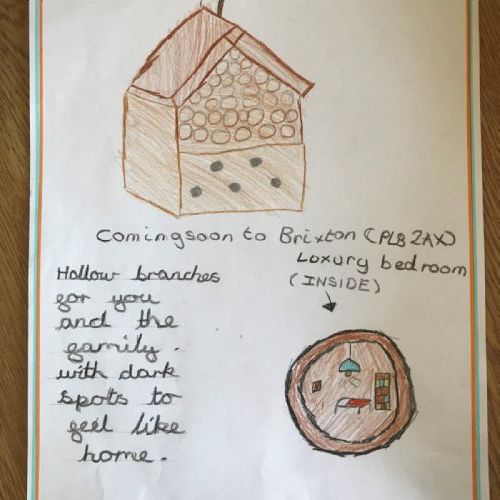 Comingsoon to Brixton (PL8 2AX)
Luxury bedroom
(INSIDE)
Hollow branches
for you
and the
family.
with dark
spots to
feel like
home.